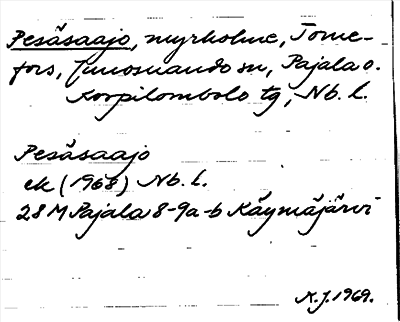 Pesäsaajo, myrholme, Torne-
fors, Junosuando sn, Pajala o.
Korpilombolo tg, Nb. l.
Pesäsaajo
ek (1968) Nb. l.
28 M Pajala 8-9a-b Käymäjärvi
K.J. 1969.